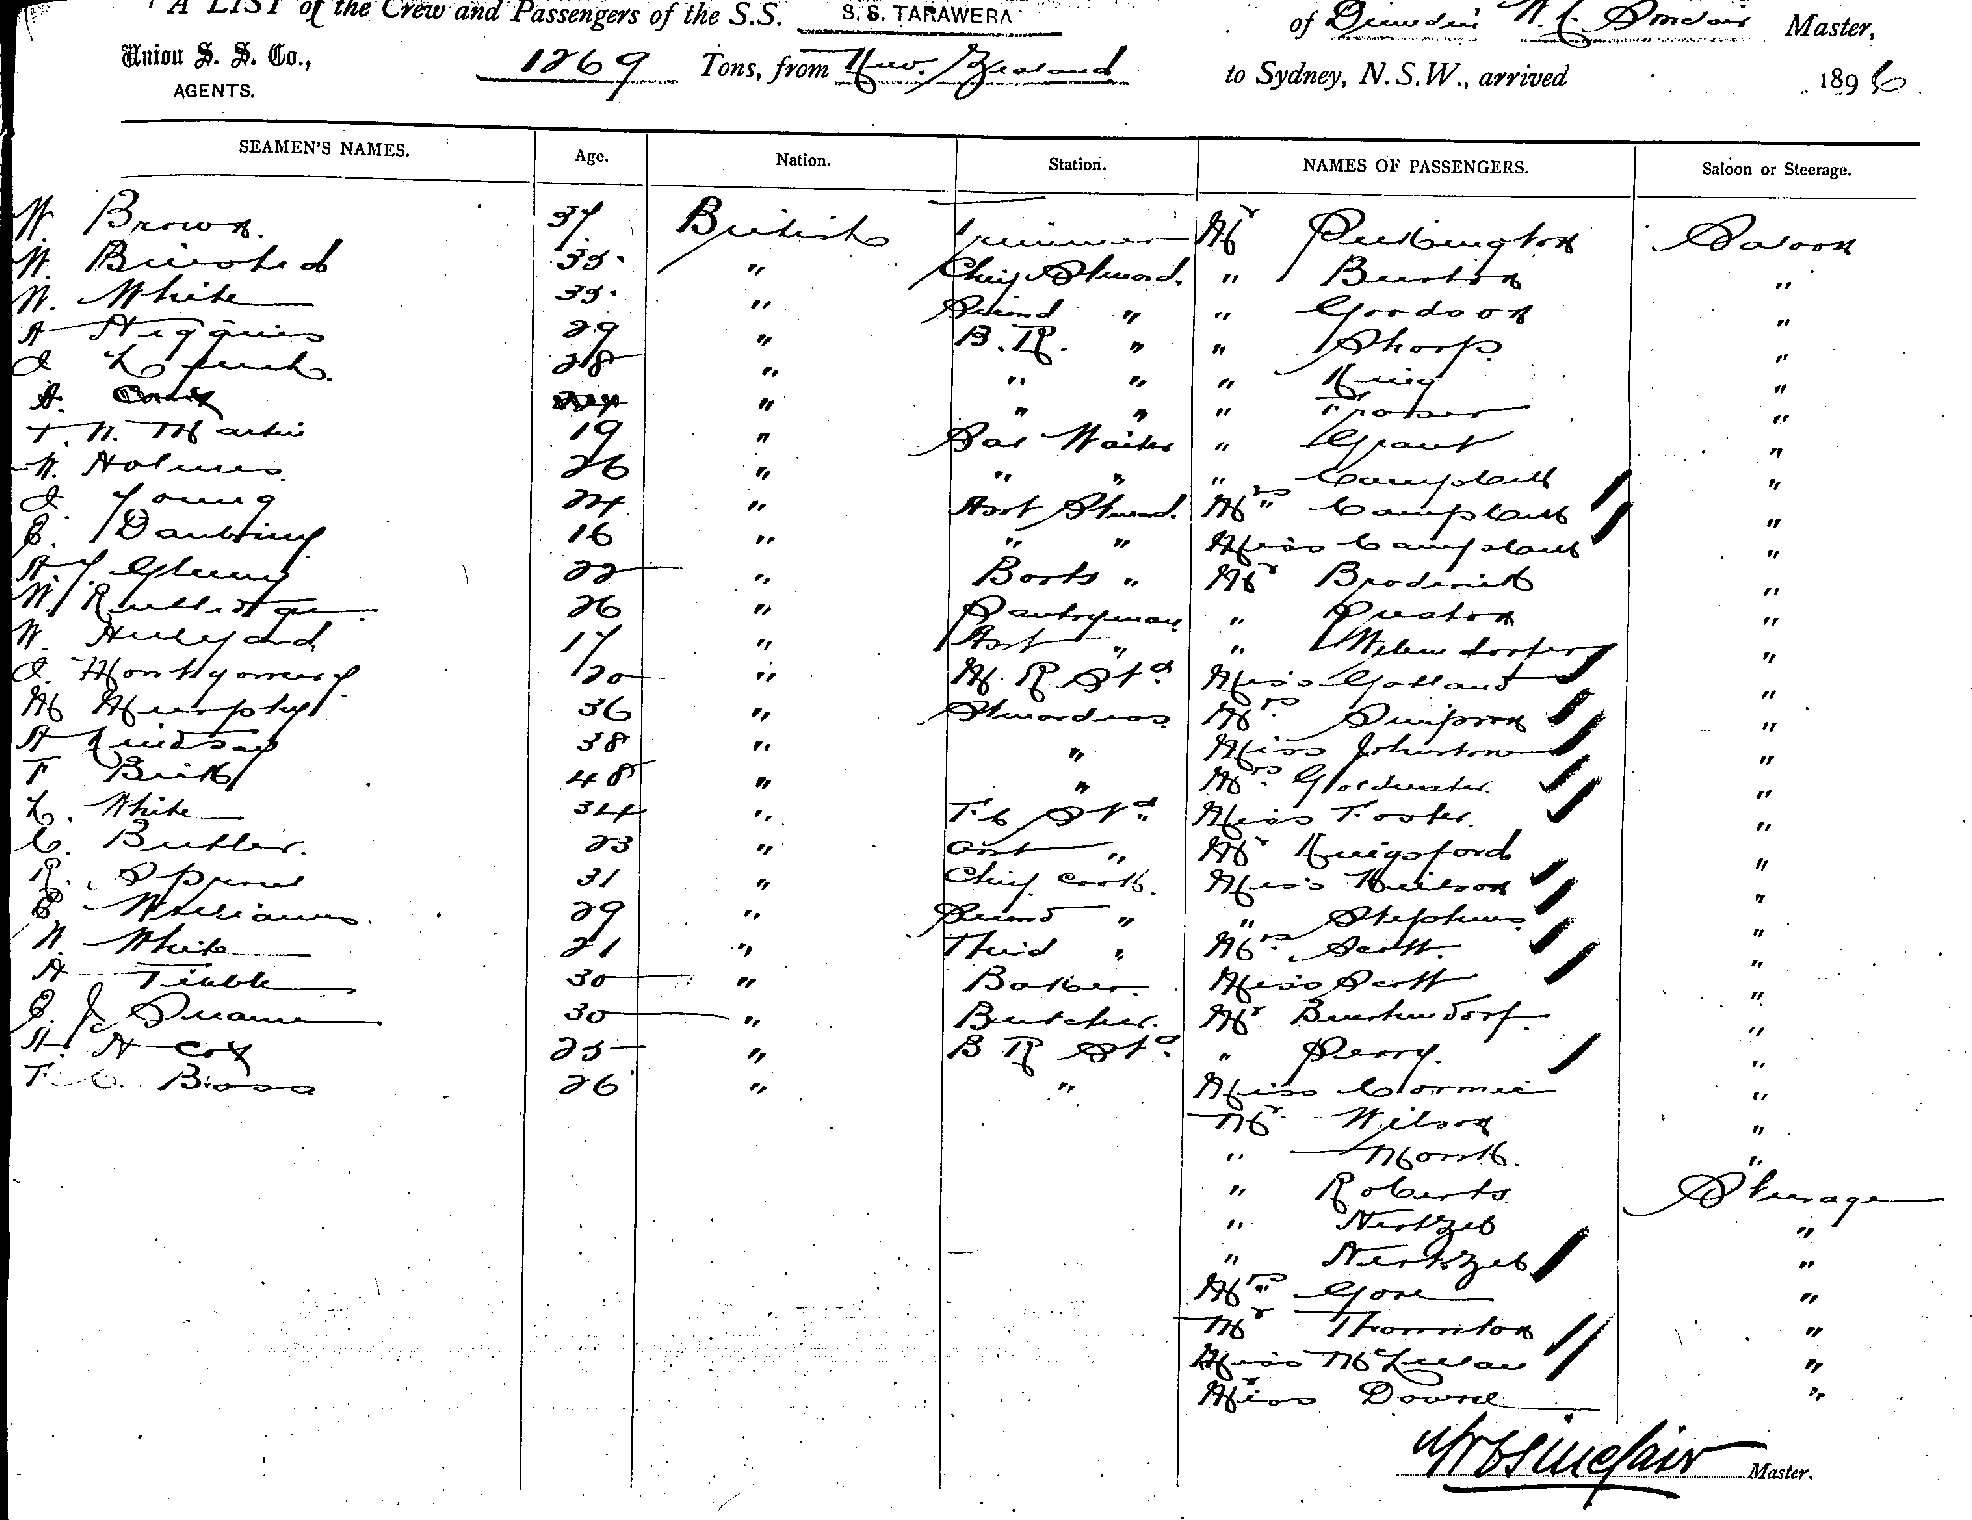 A LIST of the Crew and Passengers of the S.S. S. S. TARAWERA of Dunedin W. C. Sinclair Master,
Union S. S. Co.,
AGENTS.
1269 Tons, from New Zealand to Sydney, N.S.W., arrived 1896
SEAMEN'S NAMES. Age. Nation. Station. NAMES OF PASSENGERS. Saloon or Steerage.
W. Brown. 37 British Trimmer Mr Pilkington Saloon
W. 35 " Chief Steward. " Burton "
W. White 35 " Second " " Gordon "
A Higgins 29 " B. R. " " Sharp "
J Lynch. 28 " " " " King "
A. " " " " Fraser "
T. W. Martin 19 " Sal Waiter " Grant "
W. Holmes. 26 " " " " Campbell "
J. Young 24 " Asst Steward. Mrs Campbell "
E. Daubiny 16 " " " Miss Campbell "
A J. Glenny 22 " Boots " Mr Broderick "
W. Rutledge 26 " Pantryman " Preston "
W. Hulyard 17 " Asst " " "
J. Montgomery 20 " M. R Std Miss Gatland "
M Murphy 36 " Stewardess Mrs Simpson "
A Lindsay 38 " " Miss Johnstone "
F 48 " " Mrs "
L. White 34 " F C Std Miss Foster. "
C. Butler. 23 " asst " Mr Kingsford "
R. 31 " Chief Cook. Miss Neilson "
E. Williams. 29 " Second " " Stephens "
W. White 21 " Third " Mrs Scott. "
A 30 " Baker. Miss Scott "
E. J. 30 " Butcher. Mr "
A. A Cox 25 " B R Std " Perry. "
F. C. Boss 26 " " Miss Cormie "
Mr Wilson "
" "
" Roberts Steerage
" "
" "
Mrs Gore "
Mr Thornton "
Miss "
Miss "
W C Sinclair Master.